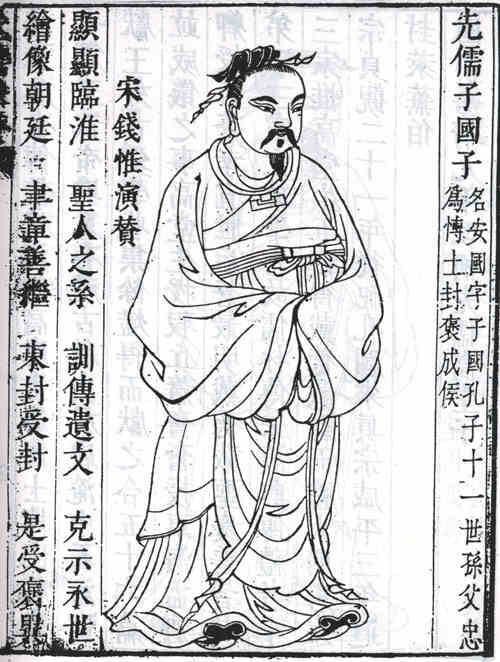 先儒子國子
名安國字子國孔子十一世孫父忠
爲博士封褒成侯
宋錢惟演贊
顯顯臨淮 聖人之系 訓傳遺文 克示永世
繪像朝廷 聿章善繼 東封受封 是受